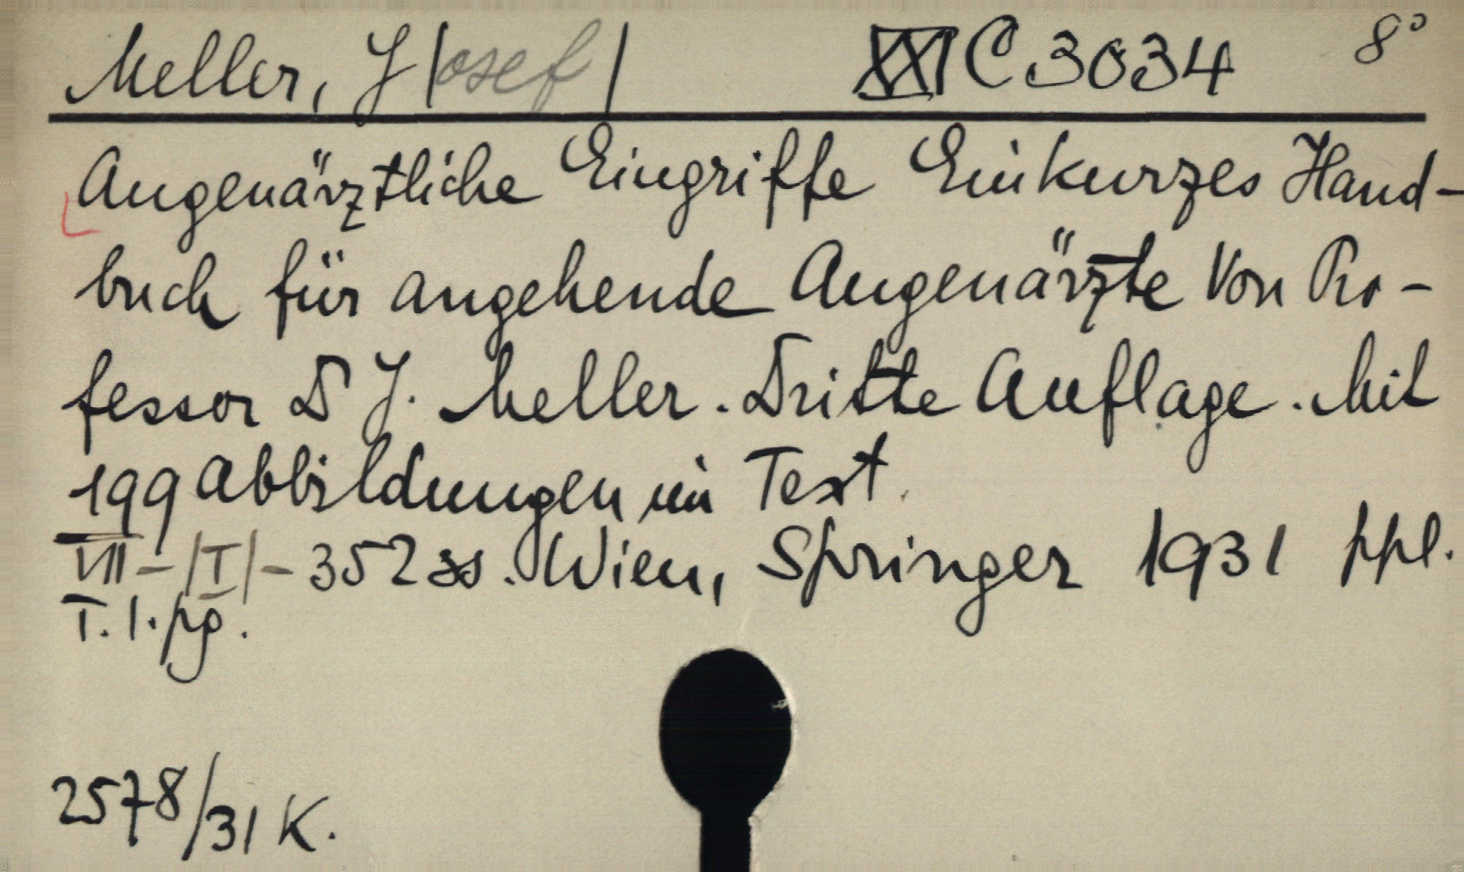 Meller, J|osef| XXI C 3034 8°
Augenärztliche Eingriffe Ein kurzes Hand-
buch für angehende Augenärzte Von Pro-
fessor D J. Meller. Dritte Auflage. Mit
199 Abbildungen im Text.
VII-|I|-352 ss. Wien, Springer 1931 ppl.
T. l. pg.
2578/31 K.